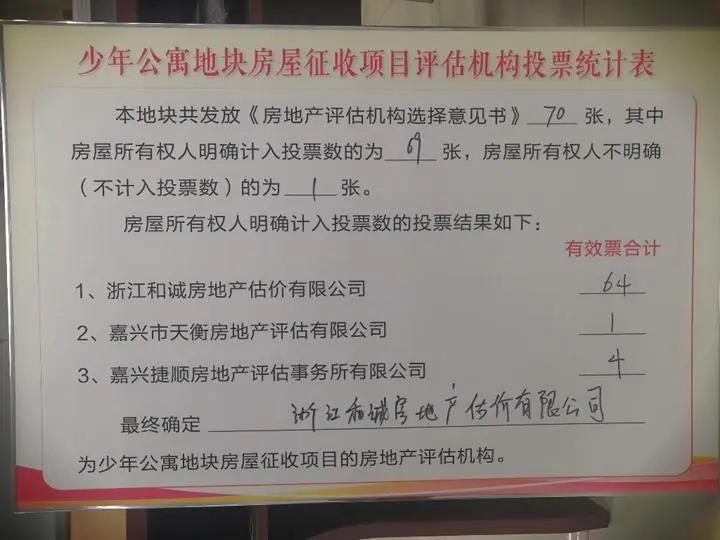 少年公寓地块房屋征收项目评估机构投票统计表
本地块共发放《房地产评估机构选择意见书》70张，其中
房屋所有权人明确计入投票数的为69张，房屋所有权人不明确
（不计入投票数）的为1张。
房屋所有权人明确计入投票数的投票结果如下：
有效票合计
1、浙江和诚房地产估价有限公司 64
2、嘉兴市天衡房地产评估有限公司 1
3、嘉兴捷顺房地产评估事务所有限公司 4
最终确定 浙江和诚房地产估价有限公司
为少年公寓地块房屋征收项目的房地产评估机构。